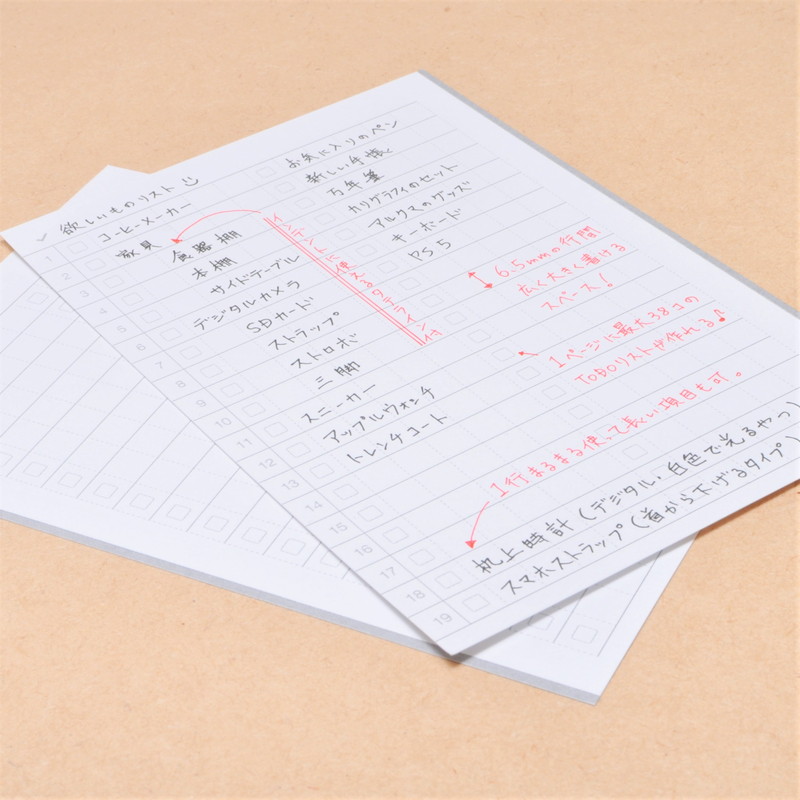 欲しいものリスト
1 コーヒーメーカー
2 家具
3 食器棚
4 本棚
5 サイドテーブル
6 デジタルカメラ
7 SDカード
8 ストラップ
9 ストロボ
10 三脚
11 スニーカー
12 アップルウォッチ
13 トレンチコート
14
15
16
17
18 机上時計(デジタル・白色で光るやつ)
19 スマホストラップ(首から下げるタイプ)
お気に入りのペン
新しい手帳
万年筆
カリグラフィのセット
アルクマのグッズ
キーボード
PS5
インデントに使えるタテライン付
6.5mmの行間
広く大きく書ける
スペース!
1ページに最大38コの
TODOリストが作れる♪
1行まるまる使って長い項目も可。